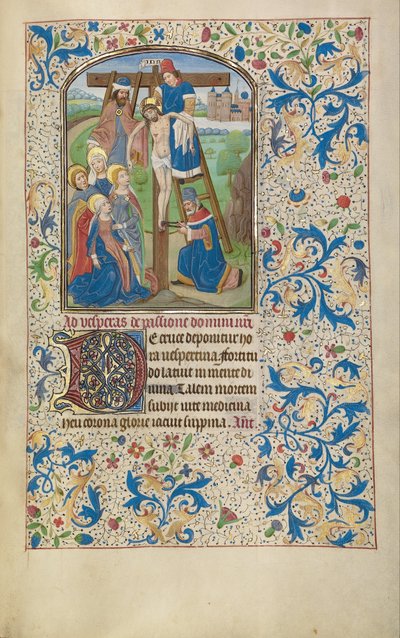 INRI
Ad vesperas de passione domini nri
De cruce deponitur ho
ra vespertina fortitu
do latuit in mente di
uina Talem mortem
subijt vite medicina
heu corona glorie iacuit suppina. Ant